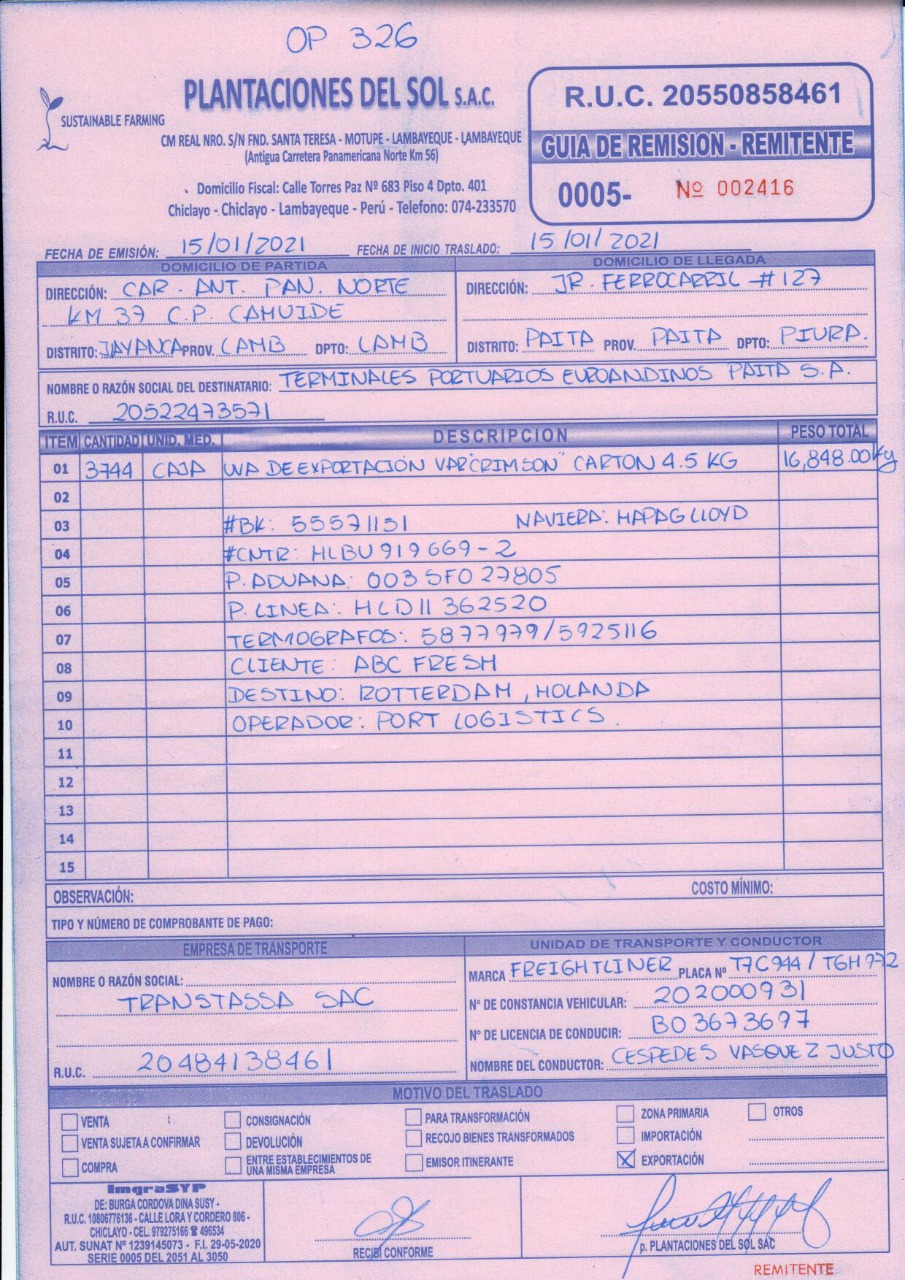 OP 326
SUSTAINABLE FARMING
PLANTACIONES DEL SOL S.A.C.
CM REAL NRO. S/N FND. SANTA TERESA - MOTUPE - LAMBAYEQUE - LAMBAYEQUE
(Antigua Carretera Panamericana Norte Km 56)
Domicilio Fiscal: Calle Torres Paz Nº 683 Piso 4 Dpto. 401
Chiclayo - Chiclayo - Lambayeque - Perú - Telefono: 074-233570
R.U.C. 20550858461
GUIA DE REMISION - REMITENTE
0005- Nº 002416
FECHA DE EMISIÓN: 15/01/2021 FECHA DE INICIO TRASLADO: 15/01/2021
DOMICILIO DE PARTIDA
DIRECCIÓN: CAR. ANT. PAN. NORTE
KM 37 C.P. CAHUIDE
DISTRITO: JAYANCA PROV. LAMB DPTO: LAMB
DOMICILIO DE LLEGADA
DIRECCIÓN: JR. FERROCARRIL #127
DISTRITO: PAITA PROV. PAITA DPTO: PIURA.
NOMBRE O RAZÓN SOCIAL DEL DESTINATARIO: TERMINALES PORTUARIOS EUROANDINOS PAITA S.A.
R.U.C. 20522473571
ITEM CANTIDAD UNID. MED. DESCRIPCION PESO TOTAL
01 3744 CAJA UVA DE EXPORTACIÓN VAR"CRIMSON" CARTON 4.5 KG 16,848.00Kg
02
03 #BK: 55571151 NAVIERA: HAPAG LLOYD
04 #CNTR: HLBU 919669-2
05 P. ADUANA: 003 SFO 27805
06 P. LINEA: HLD11362520
07 TERMOGRAFOS: 5877979/5925116
08 CLIENTE: ABC FRESH
09 DESTINO: ROTTERDAM, HOLANDA
10 OPERADOR: PORT LOGISTICS.
11
12
13
14
15
OBSERVACIÓN: COSTO MÍNIMO:
TIPO Y NÚMERO DE COMPROBANTE DE PAGO:
EMPRESA DE TRANSPORTE
NOMBRE O RAZÓN SOCIAL:
TRANSTASSA SAC
R.U.C. 20484138461
UNIDAD DE TRANSPORTE Y CONDUCTOR
MARCA FREIGHTLINER PLACA Nº T7C944 / T6H972
Nº DE CONSTANCIA VEHICULAR: 202000931
Nº DE LICENCIA DE CONDUCIR: B03673697
NOMBRE DEL CONDUCTOR: CESPEDES VASQUEZ JUSTO
MOTIVO DEL TRASLADO
VENTA CONSIGNACIÓN PARA TRANSFORMACIÓN ZONA PRIMARIA OTROS
VENTA SUJETA A CONFIRMAR DEVOLUCIÓN RECOJO BIENES TRANSFORMADOS IMPORTACIÓN
COMPRA ENTRE ESTABLECIMIENTOS DE EMISOR ITINERANTE X EXPORTACIÓN
UNA MISMA EMPRESA
ImgraSYP
DE: BURGA CORDOVA DINA SUSY -
R.U.C. 10806776136 - CALLE LORA Y CORDERO 806 -
CHICLAYO - CEL. 979275166 ☎ 496534
AUT. SUNAT Nº 1239145073 - F.I. 29-05-2020
SERIE 0005 DEL 2051 AL 3050
RECIBÍ CONFORME
p. PLANTACIONES DEL SOL SAC
REMITENTE